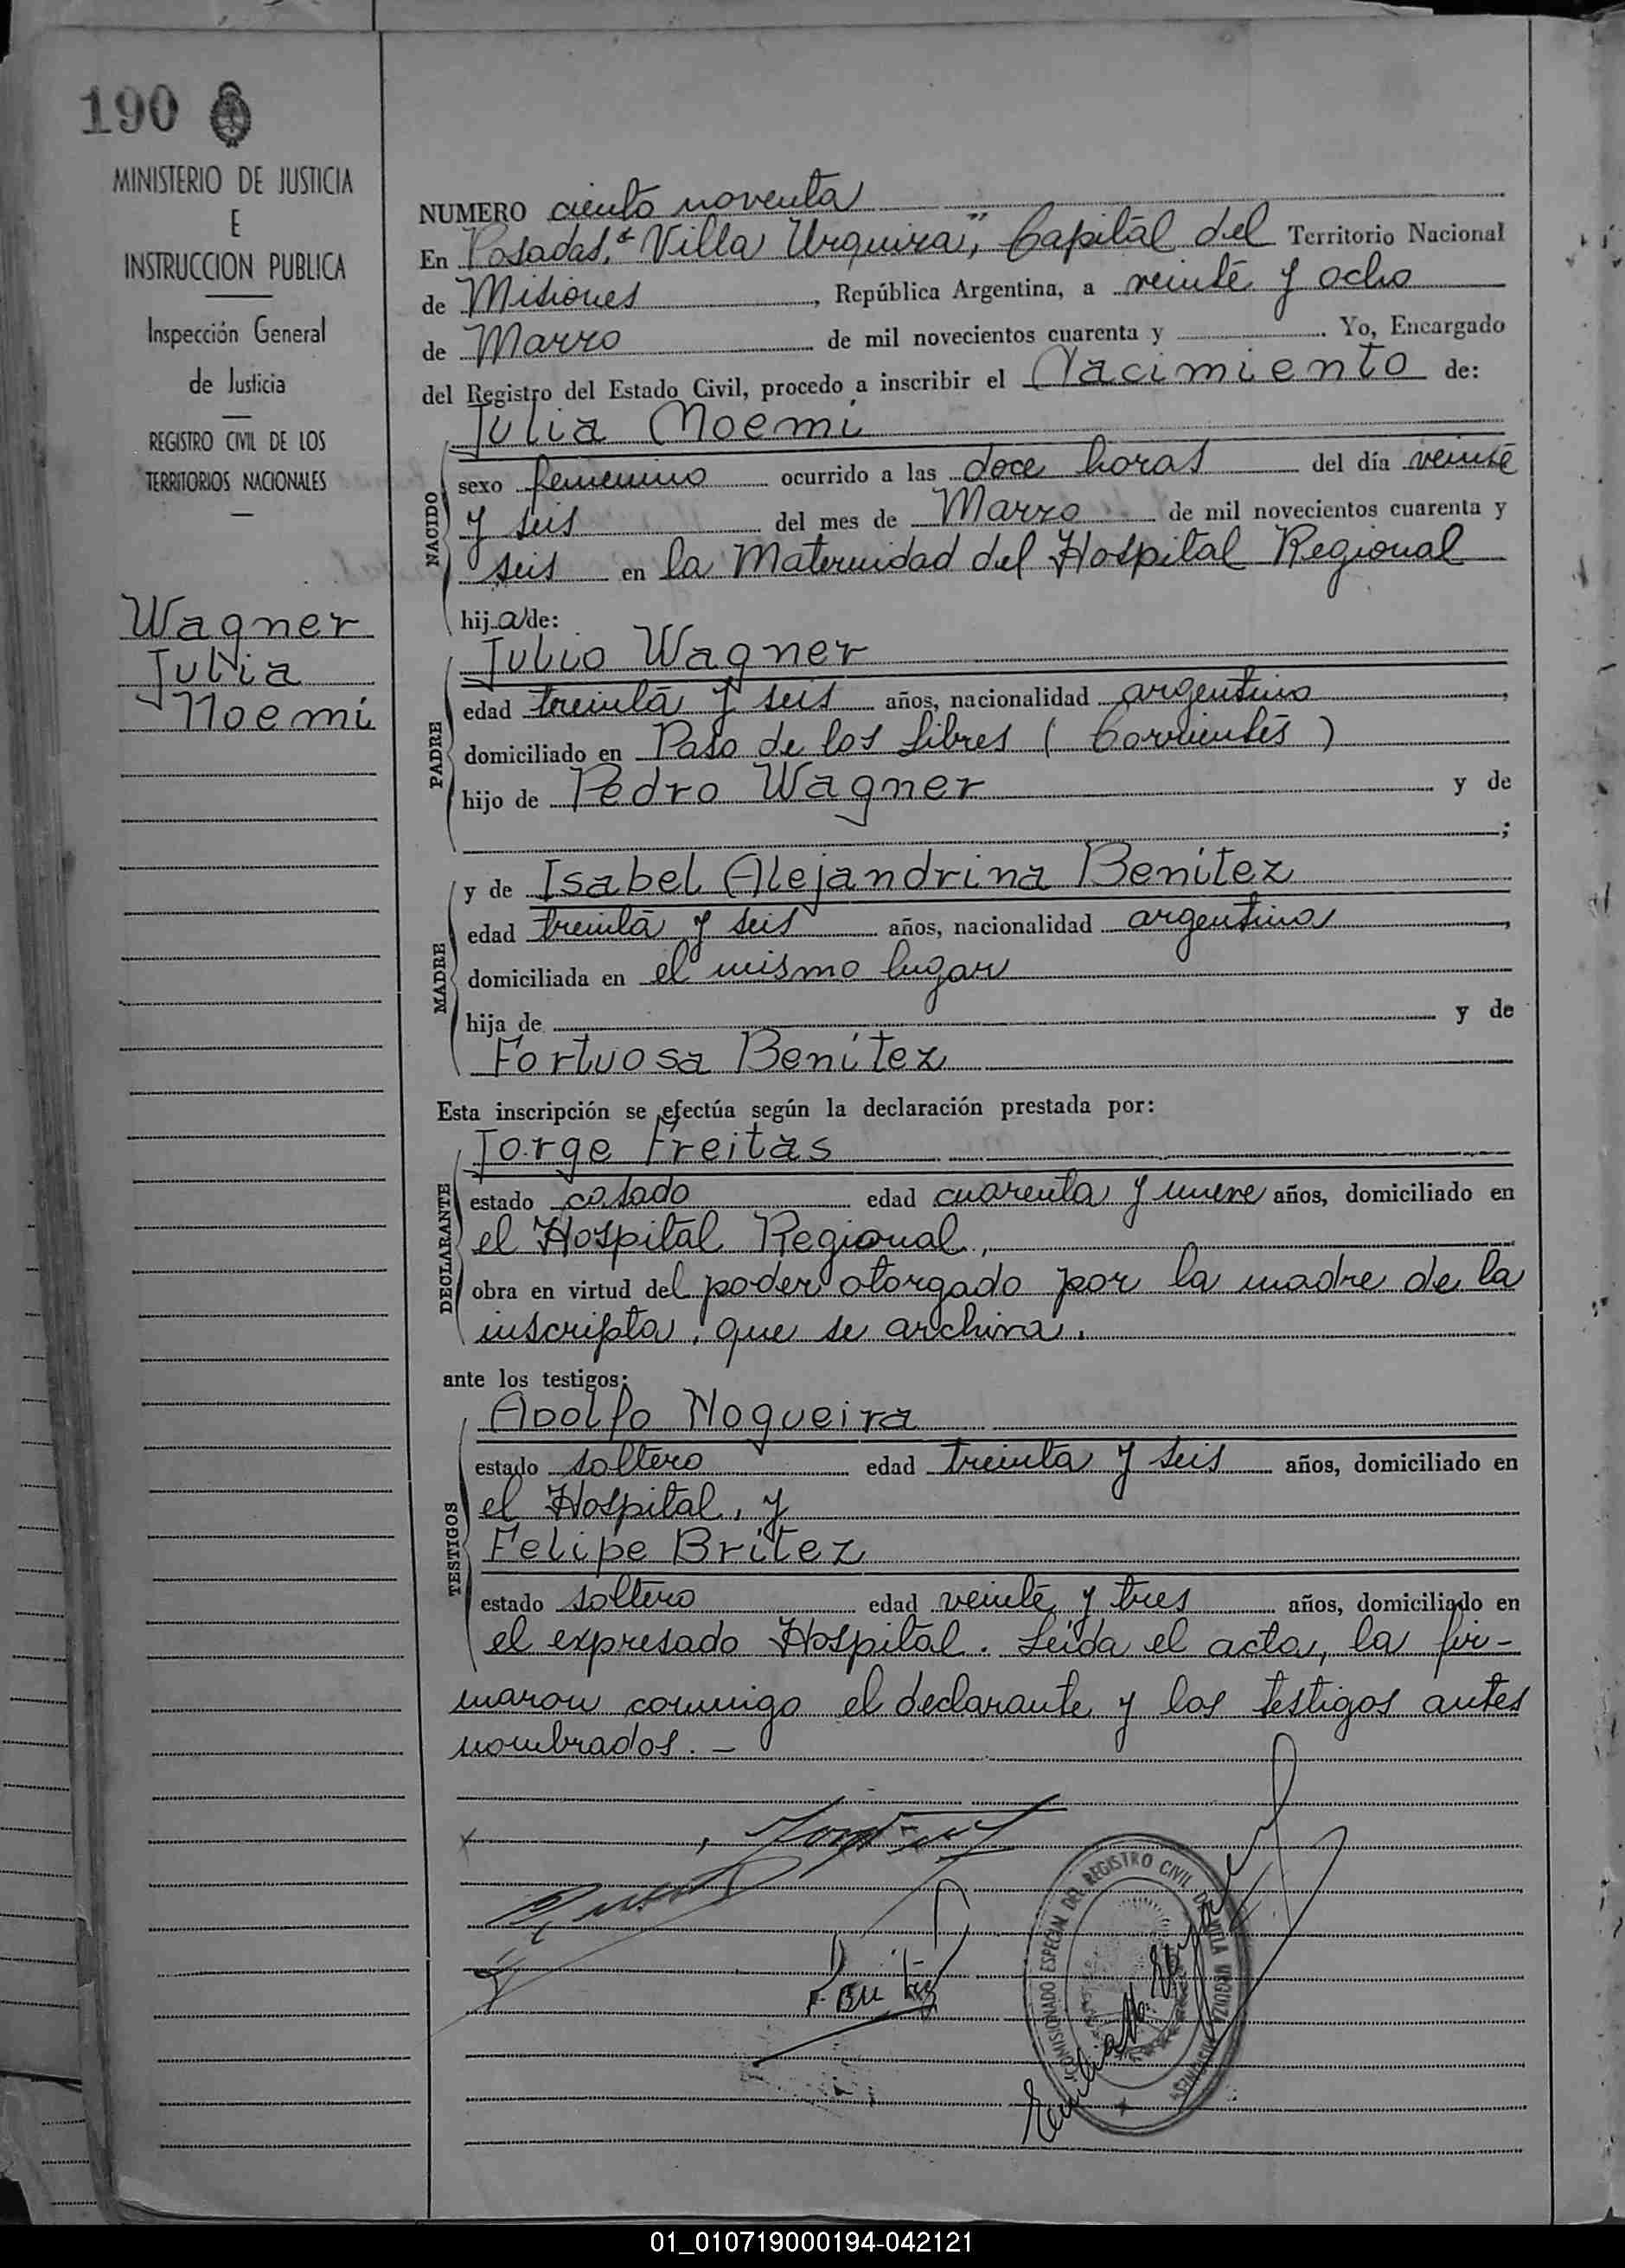 190
MINISTERIO DE JUSTICIA
E
INSTRUCCION PUBLICA
Inspección General
de Justicia
REGISTRO CIVIL DE LOS
TERRITORIOS NACIONALES
Wagner
Julia
Noemi
NUMERO ciento noventa
En Posadas, "Villa Urquiza", Capital del Territorio Nacional
de Misiones, República Argentina, a veinte y ocho
de Marzo de mil novecientos cuarenta y . Yo, Encargado
del Registro del Estado Civil, procedo a inscribir el Nacimiento de:
Julia Noemi
NACIDO
sexo femenino ocurrido a las doce horas del día veinte
y seis del mes de Marzo de mil novecientos cuarenta y
seis en la Maternidad del Hospital Regional
hija de:
PADRE
Julio Wagner
edad treinta y seis años, nacionalidad argentino,
domiciliado en Paso de los Libres (Corrientes)
hijo de Pedro Wagner y de
;
MADRE
y de Isabel Alejandrina Benitez
edad treinta y seis años, nacionalidad argentina,
domiciliada en el mismo lugar
hija de y de
Fortuosa Benitez
Esta inscripción se efectúa según la declaración prestada por:
DECLARANTE
Jorge Freitas
estado casado edad cuarenta y nueve años, domiciliado en
el Hospital Regional,
obra en virtud del poder otorgado por la madre de la
inscripta, que se archiva.
ante los testigos:
TESTIGOS
Adolfo Nogueira
estado soltero edad treinta y seis años, domiciliado en
el Hospital, y
Felipe Britez
estado soltero edad veinte y tres años, domiciliado en
el expresado Hospital. Leída el acta, la fir-
maron conmigo el declarante y los testigos antes
nombrados. -
COMISIONADO ESPECIAL DEL REGISTRO CIVIL DE VILLA URQUIZA MISIONES
01_010719000194-042121